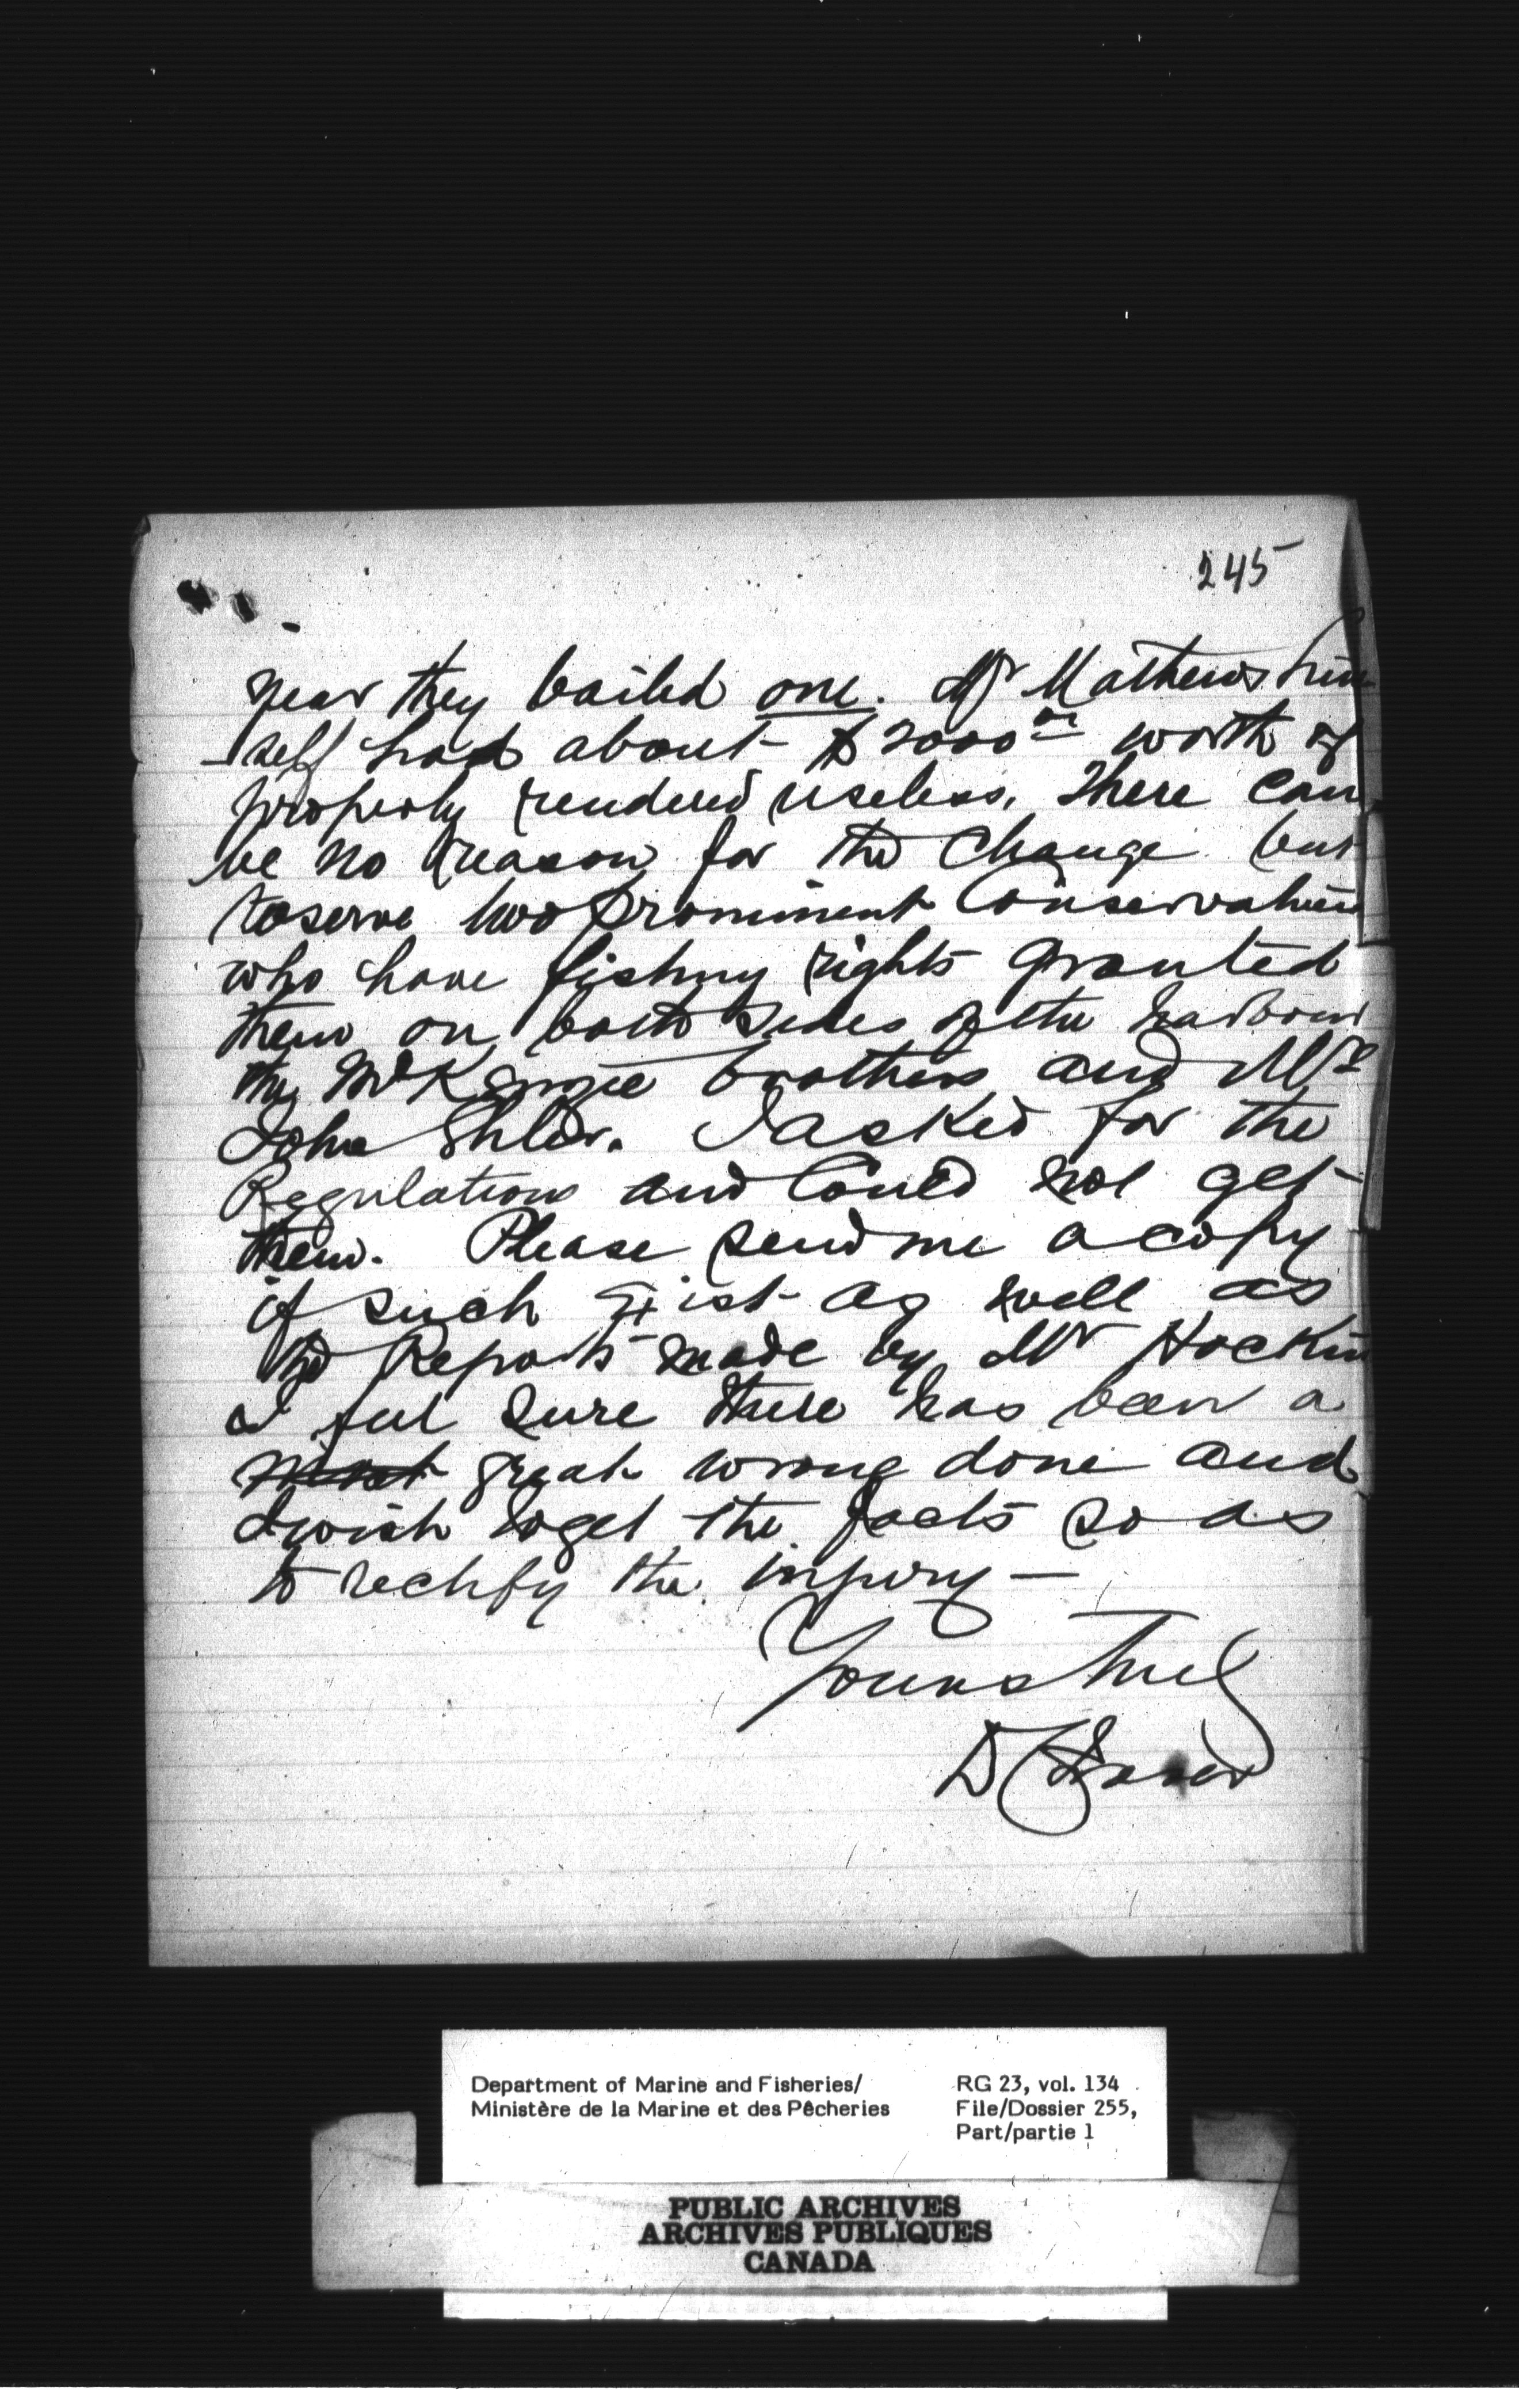 245
year they bailed one. Mr Mathews him
-self had about $2000 00 worth of
property rendered useless. There can
be no reason for the change but
to serve two prominent Conservatives
who have fishing rights granted
them on both sides of the harbour
the McKenzie brothers and Mr
John. I asked for the
Regulations and could not get
them. Please send me a copy
if such exist as well as
the Reports made by Mr Hockin
I feel sure there has been a
most great wrong done and
I wish to get the facts so as
to rectify the injury —
Yours truly
D C Fraser
Department of Marine and Fisheries/
Ministère de la Marine et des Pêcheries
RG 23, vol. 134
File/Dossier 255,
Part/partie 1
PUBLIC ARCHIVES
ARCHIVES PUBLIQUES
CANADA